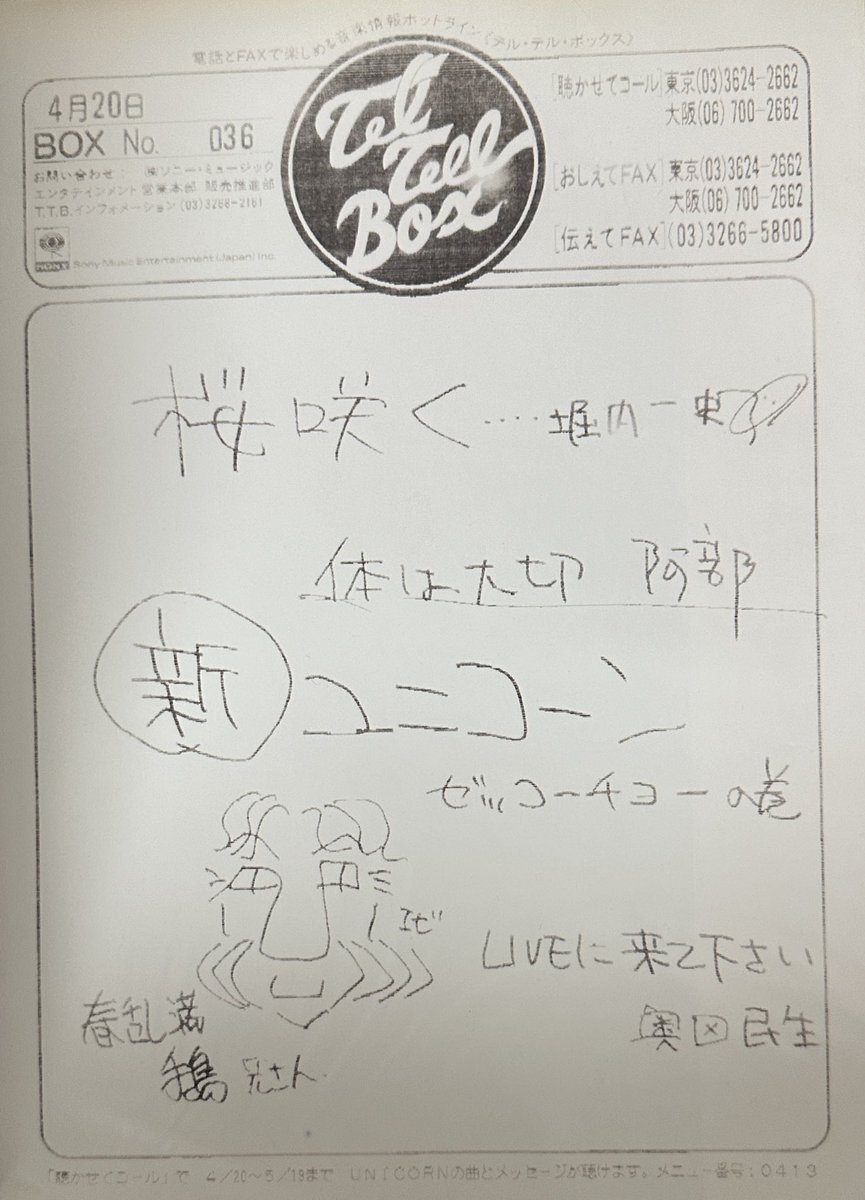 電話とFAXで楽しめる音楽情報ホットライン《テル・テル・ボックス》
4月20日
BOX No. 036
お問い合わせ: ㈱ソニー・ミュージック
エンタテインメント 営業本部 販売推進部
T.T.B.インフォメーション(03)3266-2161
SONY Sony Music Entertainment (Japan) Inc.
Tel
Tell
Box
[聴かせてコール]東京(03)3624-2662
大阪(06)700-2662
[おしえてFAX]東京(03)3624-2662
大阪(06)700-2662
[伝えてFAX](03)3266-5800
桜咲く‥‥堀内一史
体は大切 阿部
新 ユニコーン
ゼッコーチョーの巻
エビ
LIVEに来て下さい
奥田民生
春乱満
手島兄さん
「聴かせてコール」で 4/20〜5/19まで UNICORNの曲とメッセージが聴けます。メニュー番号:0413